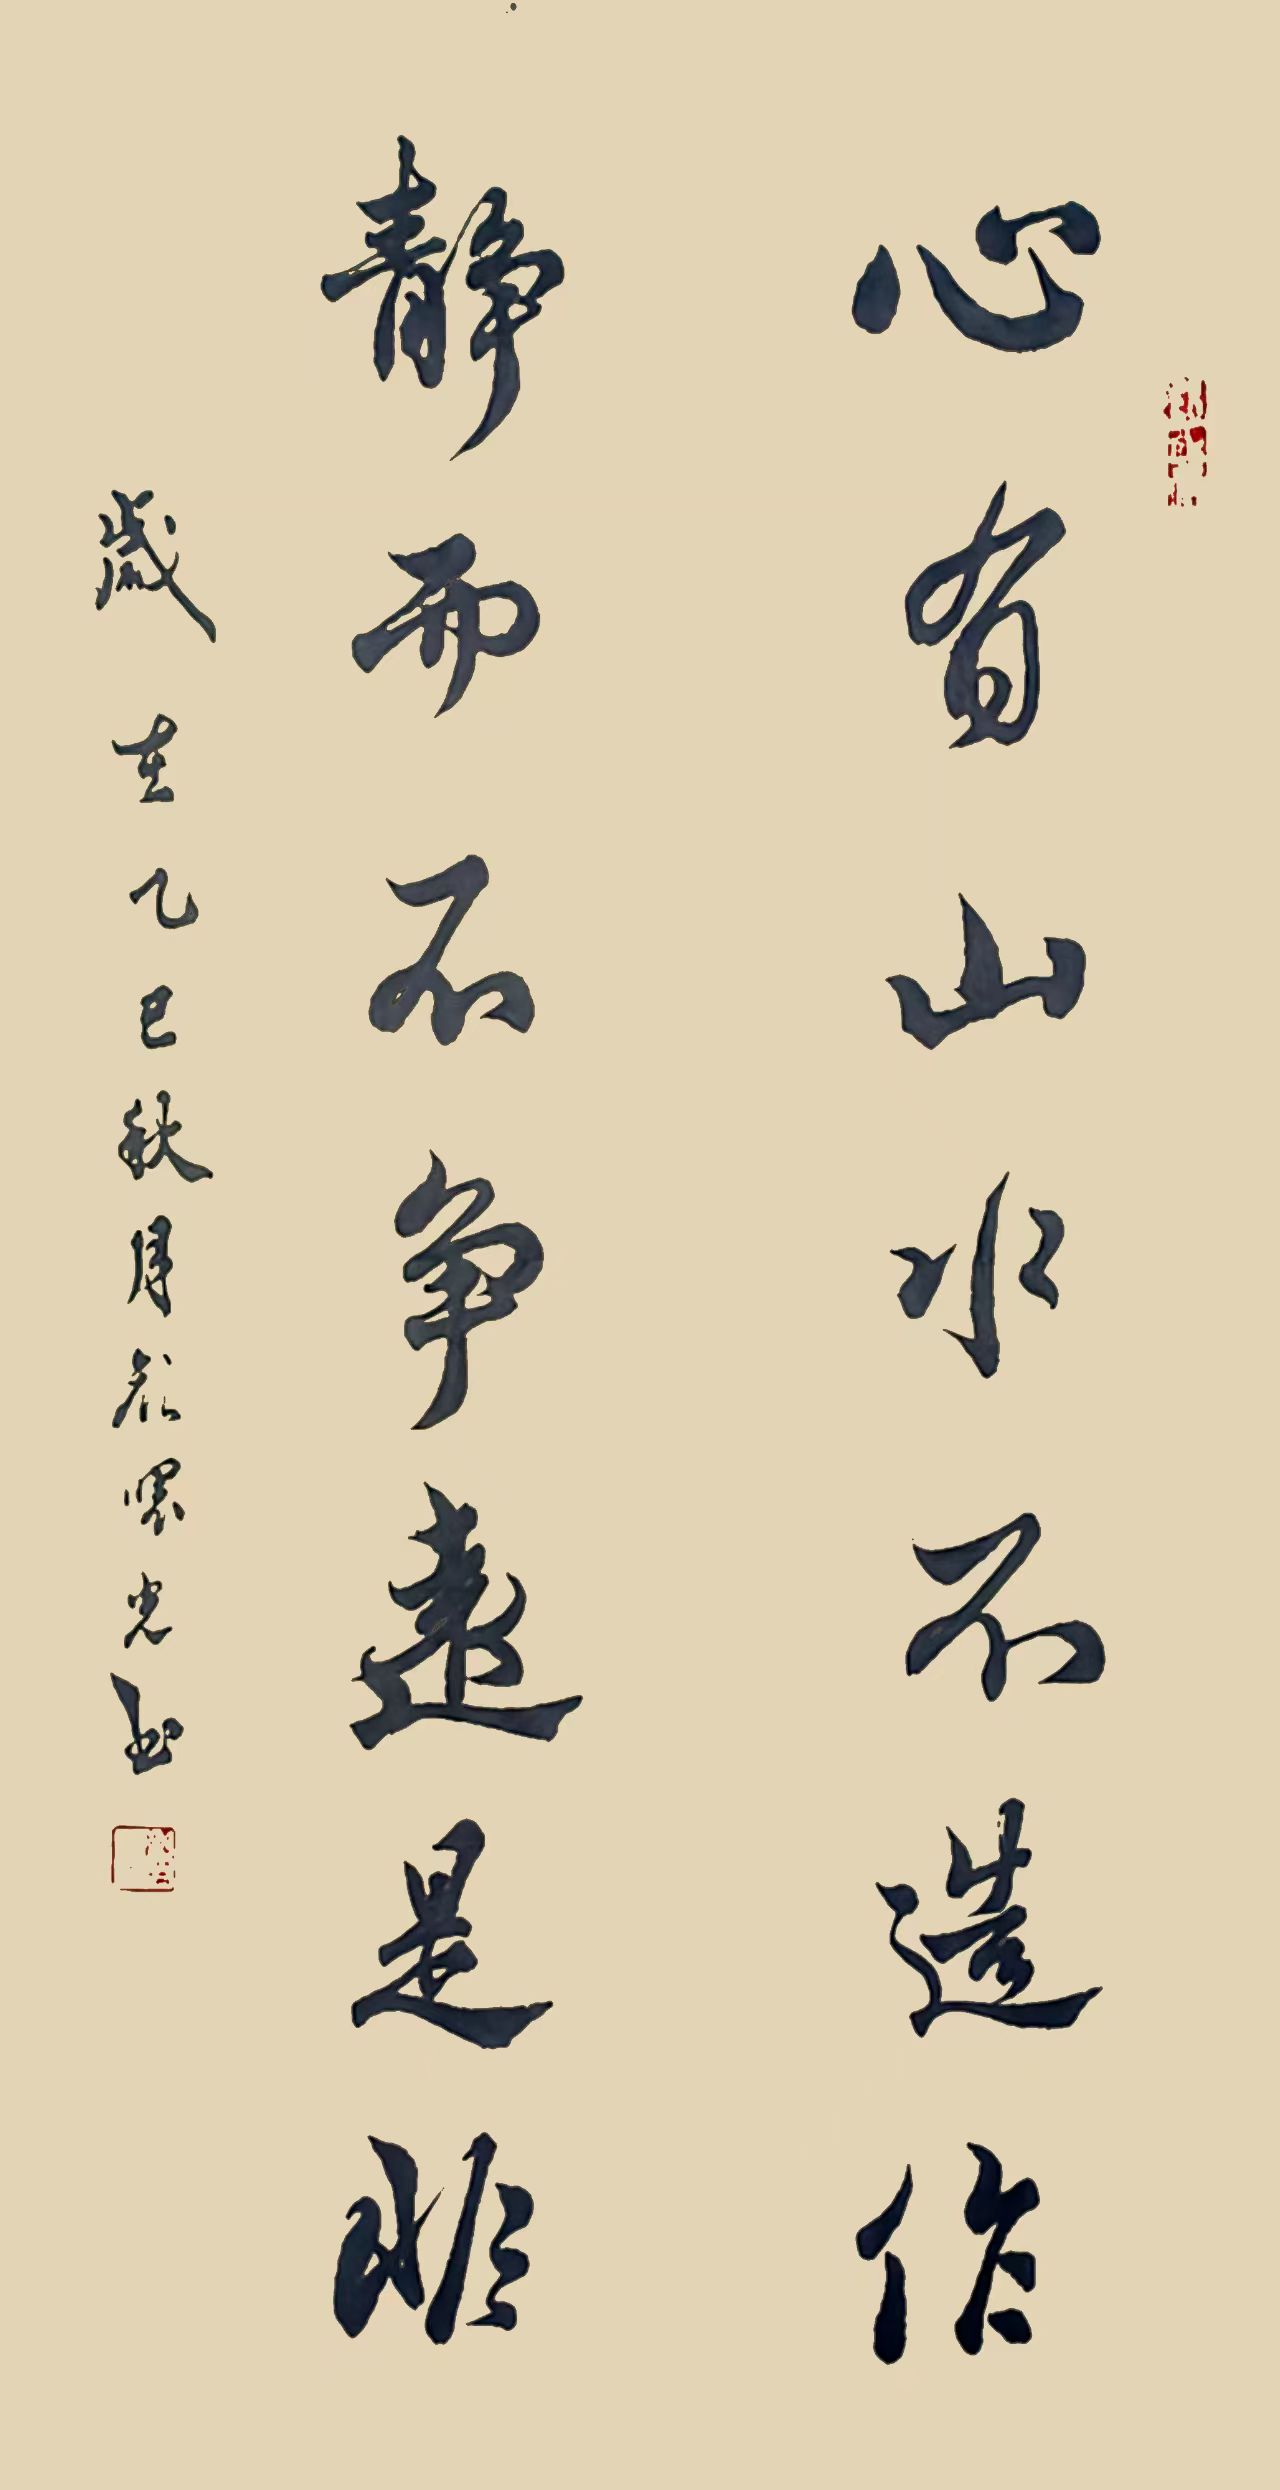 心有山水不造作
静而不争远是非
岁在乙巳秋月 光书